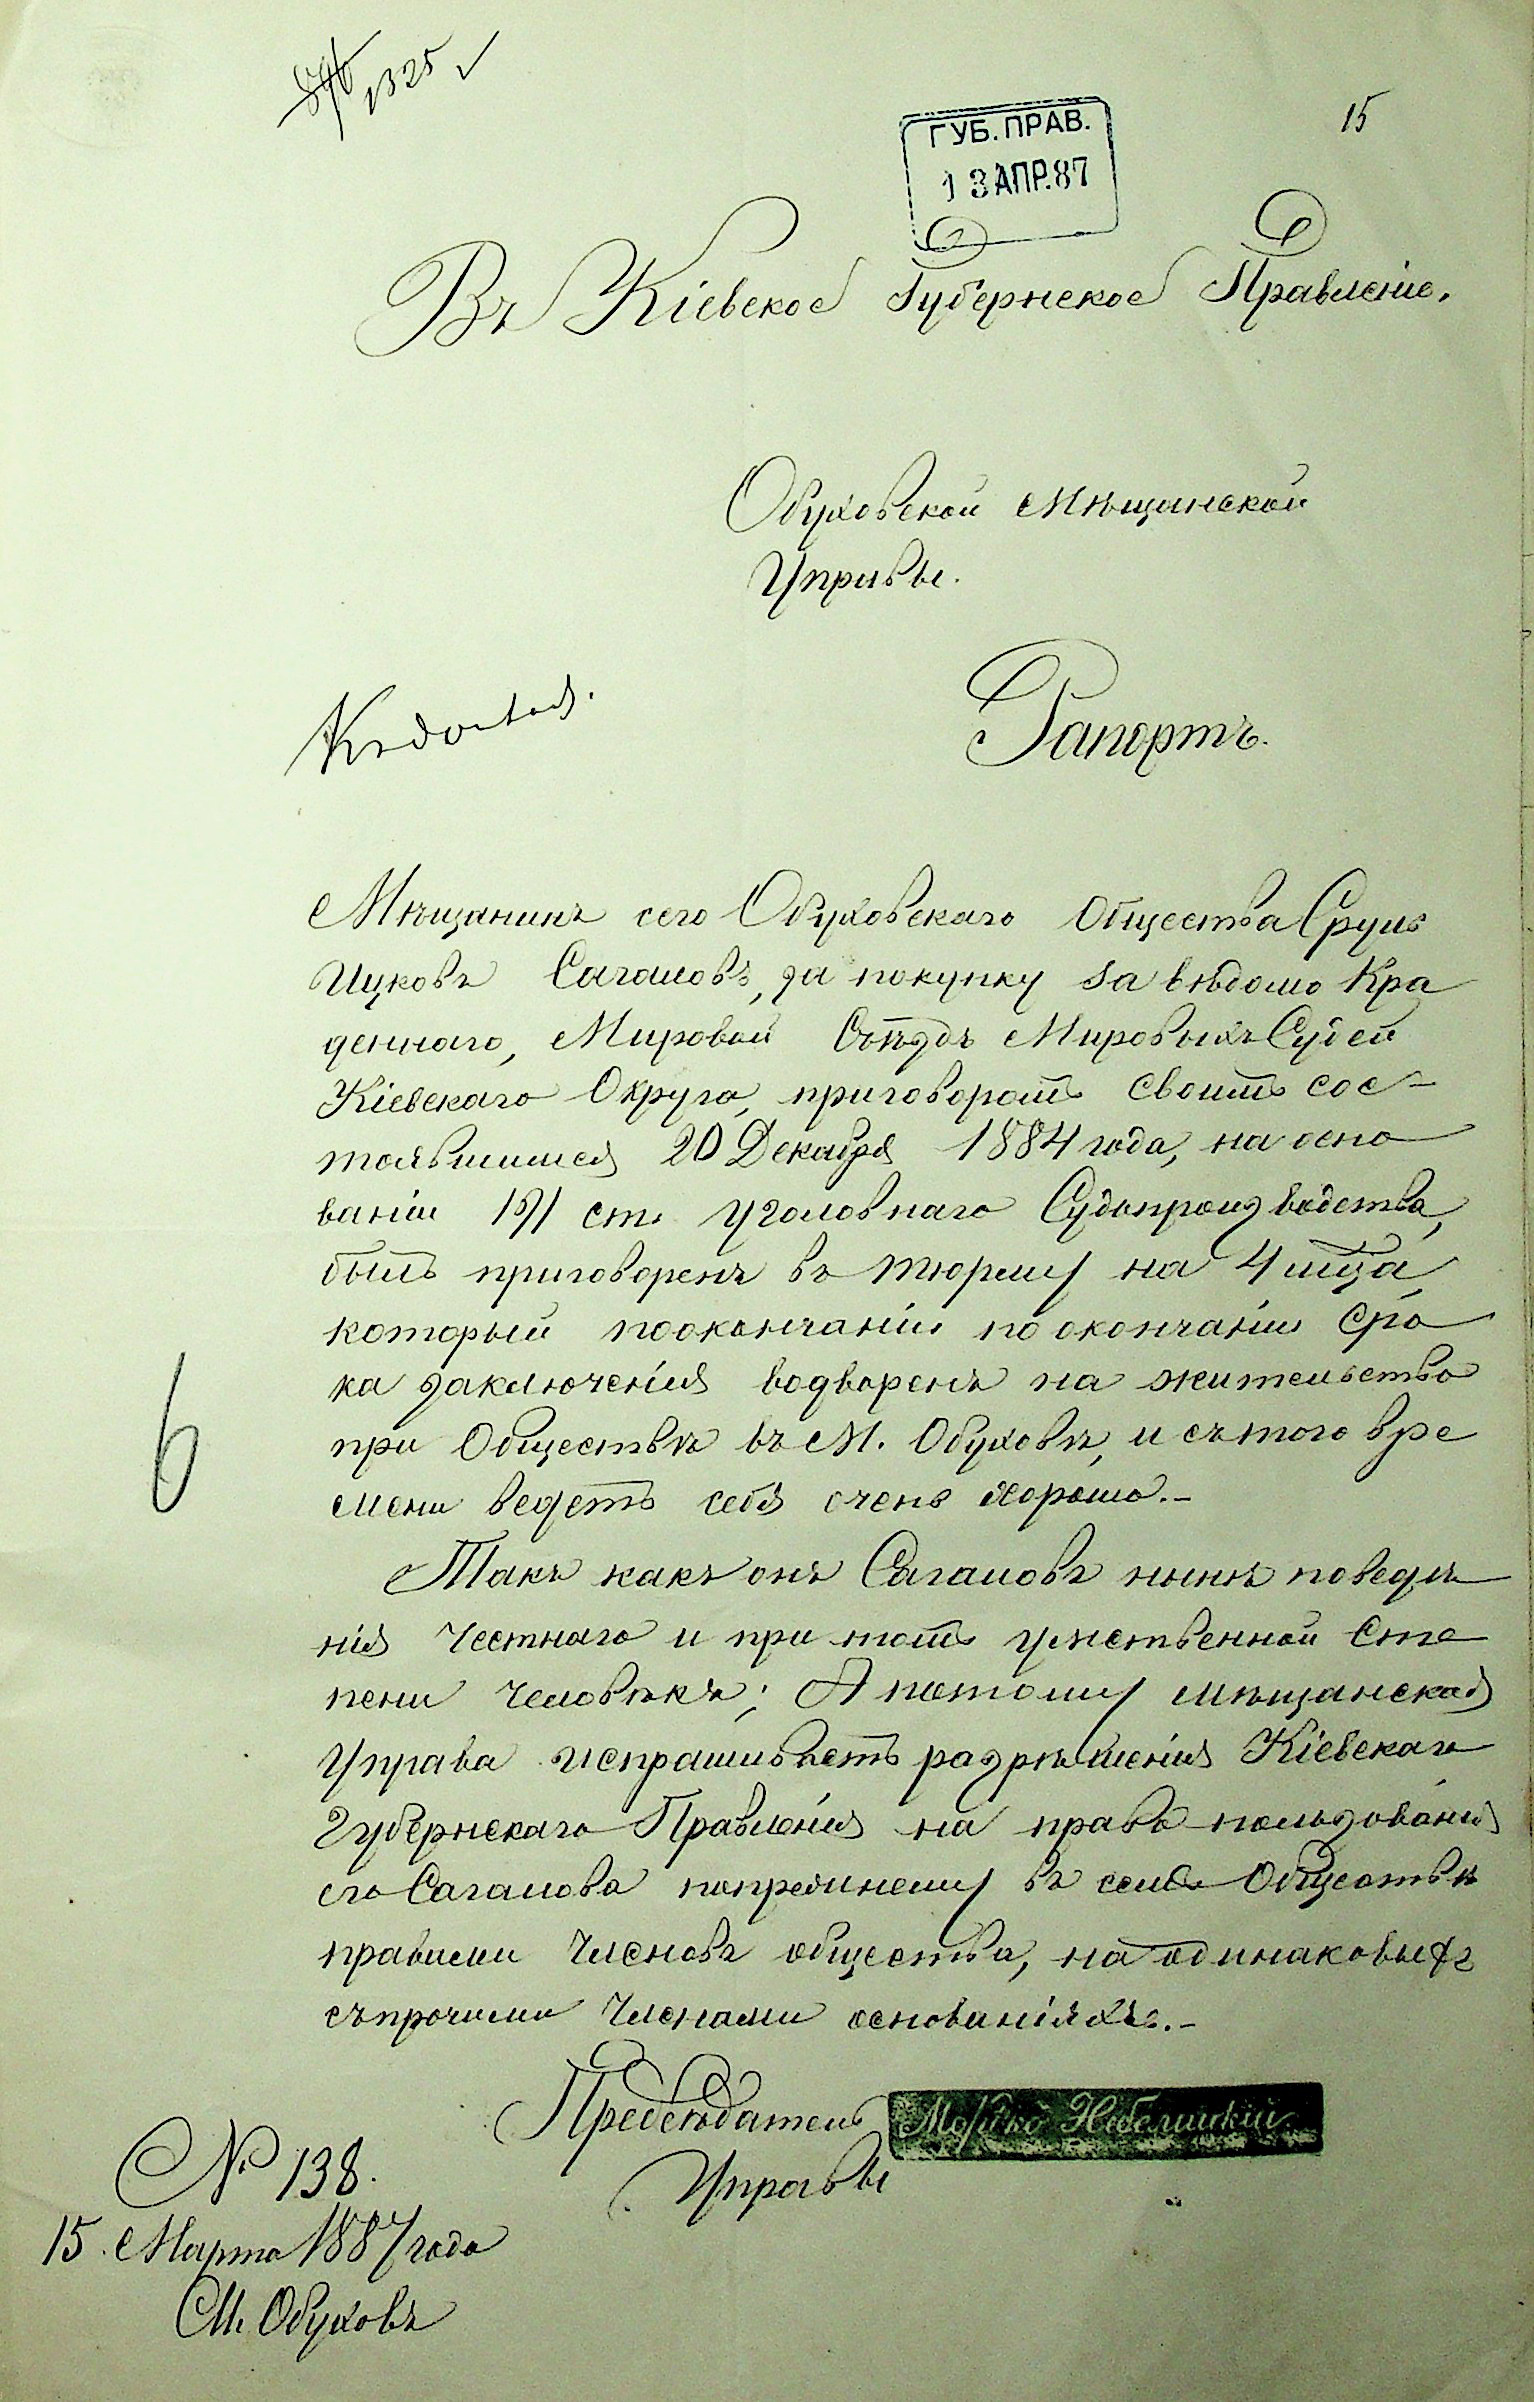 1325
15
ГУБ. ПРАВ.
13 АПР. 87
Въ Кіевское Губернское Правленіе.
Обуховской Мѣщанской
Управы.
Къ доклад.
Рапортъ.
Мѣщанинъ сего Обуховскаго Общества Сруль
Ицковъ Сагаловъ, за покупку за вѣдомо Кра
деннаго, Мировой Съѣздъ Мировыхъ Судей
Кіевскаго Округа, приговоромъ своимъ сос-
тоявшимся 20 Декабря 1884 года, на осно
ваніи 191 ст. Уголовнаго Судопроизводства,
былъ приговоренъ въ тюрьму на 4 мѣсца
который поокончаніи по окончаніи сро
ка заключенія водворенъ на жительство
при Обществѣ въ М. Обуховѣ, и съ того вре
мени ведетъ себя очень хорошо.-
6
Такъ какъ онъ Сагаловъ нынѣ поведѣ
нія честнаго и при томъ умственной сте
пени человѣкъ; А потому мѣщанская
Управа испрашиваетъ разрѣшенія Кіевскаго
Губернскаго Правленія на право пользованія
его Сагалова попрежнему въ семъ Обществѣ
правами членовъ общества, на одинаковыхъ
съ прочими членами основаніяхъ.-
Предсѣдатель
Управы
№ 138.
15 Марта 1887 года
М. Обуховъ